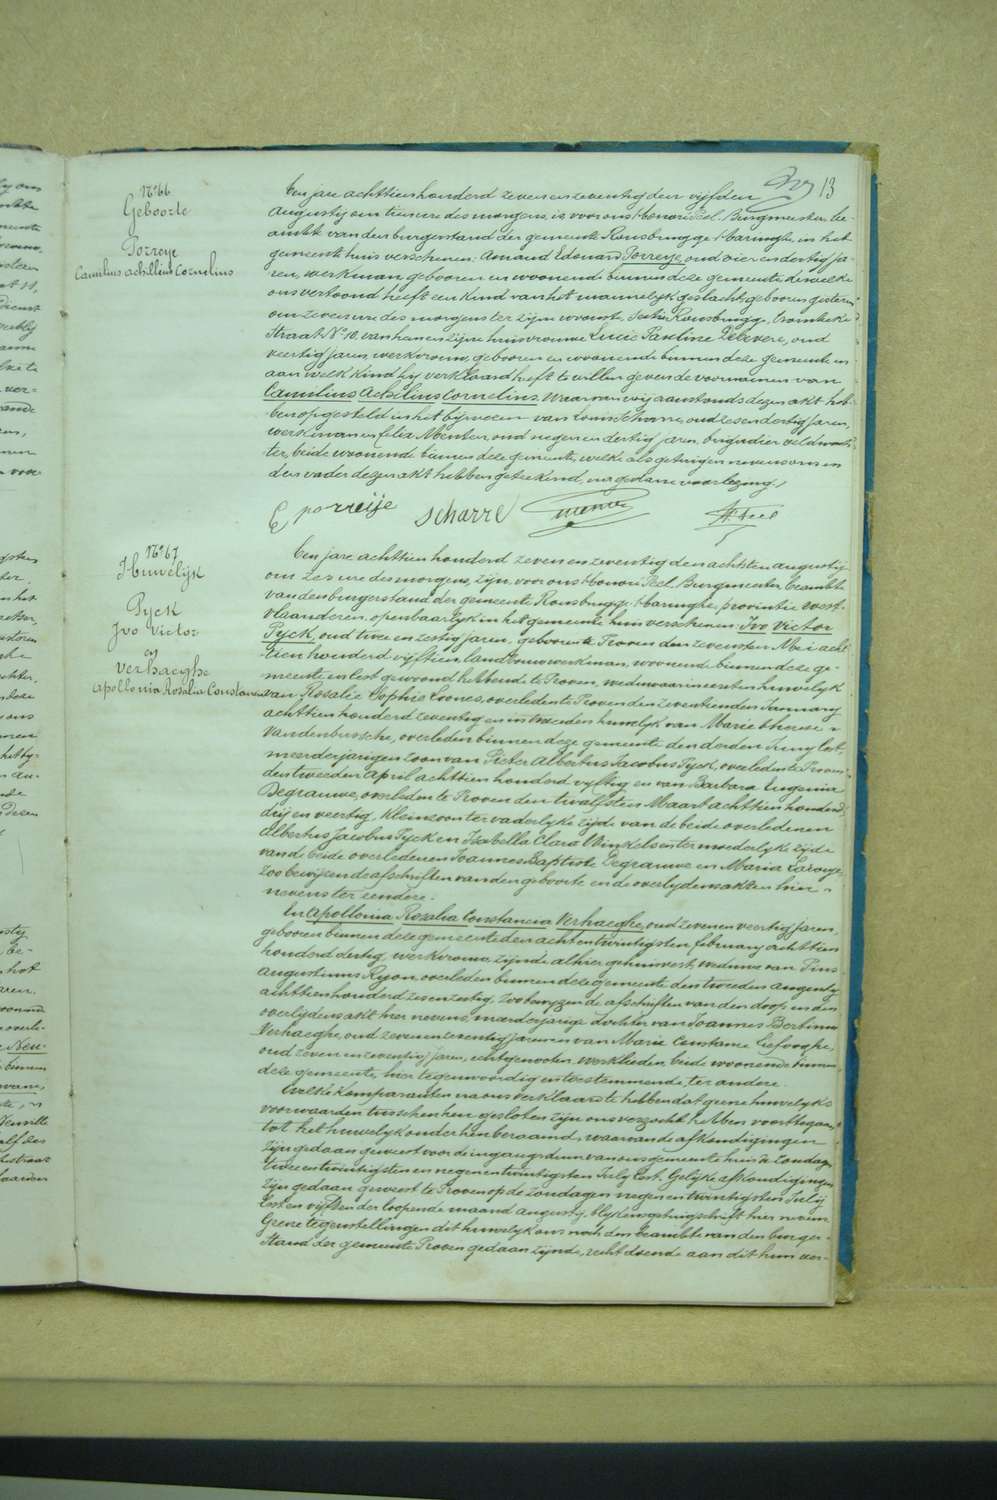 13
N° 66
Geboorte
Porreye
Camilius Achillius Cornelius
Ten jare achttien honderd zeven en zeventig den vijfden
Augusty om tien ure des morgens, is voor ons Honoré Peel, Burgmeester, be-
ambte van den burgerstand der gemeente Rousbrugge-Haringhe, in het
gemeentehuis verschenen: Amand Edouard Porreye, oud vier en dertig ja-
ren, werkman, geboren en woonende binnen deze gemeente, dewelke
ons vertoond heeft een kind van het mannelijk geslacht, geboren gisteren
om zeven ure des morgens ter zijner woonst, Sectie Rousbrugge, Crombeke
Straat N° 10, van hem en zijne huisvrouwe Lucie Pauline Delevere, oud
veertig jaren, werkvrouw, geboren en woonende binnen deze gemeente en
aan welk kind hij verklaard heeft te willen geven de voornamen van
Camilius Achilius Cornelius. Waarvan wij aanstonds dezen akt heb-
ben opgesteld in het bijwezen van Louis Scharre, oud zes en dertig jaren,
werkman en Felix Menten, oud negen en dertig jaren, brigadier veldwach-
ter, beide woonende binnen deze gemeente, welke als getuigen nevens ons en
den vader dezen akt hebben geteekend, na gedane voorlezing.
E porreije scharre Menten H. Peel
N° 67
Huwelijk
Pyck
Ivo Victor
en
Verhaeghe
Apollonia Rosalia Constancia
Ten jare achttien honderd zeven en zeventig den achtsten Augusty
om zes ure des morgens, zijn voor ons Honoré Peel, Burgmeester, beambte
van den burgerstand der gemeente Rousbrugge-Haringhe, provintie West-
vlaanderen, openbaarlijk in het gemeente huis verschenen: Ivo Victor
Pyck, oud twee en zestig jaren, geboren te Proven den zevensten Mei acht-
tien honderd vijftien, landbouwwerkman, woonende binnen deze ge-
meente en lest gewoond hebbende te Proven, weduwaar in eersten huwelijk
van Rosalie Sophie Loones, overleden te Proven den zeventienden January
achttien honderd zeventig en in tweeden huwelijk van Marie Therese
Vandenbussche, overleden binnen deze gemeente den derden Juny lest,
meerderjarigen zoon van Pieter Albertus Jacobus Pyck, overleden te Proven
den tweeden April achttien honderd vyftig en van Barbara Eugenia
Degrauwe, overleden te Proven den twalfsten Maart achttien honderd
drij en veertig, kleinzoon ter vaderlyke zijde van de beide overledenen
Albertus Jacobus Pyck en Isabella Clara Winkels en ter moederlyke zijde
van de beide overledenen Joannes Baptiste Degrauwe en Maria Laroije,
zoo bewijzen de afschriften van den geboorte en de overlydensakten hier
nevens ter eendere.
En Apollonia Rosalia Constancia Verhaeghe, oud zeven en veertig jaren,
geboren binnen deze gemeente den acht en twintigsten february achttien
honderd dertig, werkvrouw, zijnde alhier gehuisvest, weduwe van Pius
Augustinus Ryon, overleden binnen deze gemeente den tweeden Augusty
achttien honderd zeven zestig, zoo bewyzen de afschriften van den doop en den
overlydensakt hier nevens, meerderjarige dochter van Joannes Bertinus
Verhaeghe, oud zeven en zeventig jaren en van Marie Constance Lefooghe,
oud zeven en zeventig jaren, echtgenooten, werklieden, beide woonende binnen
deze gemeente, hier tegenwoordig en toestemmende, ter andere.
Welke komparanten na ons verklaard te hebben dat geene huwelyksche
voorwaarden tusschen hen gesloten zijn ons verzocht hebben voorttegaan
tot het huwelyk onder hen beraamd, waarvan de afkondigingen
zijn gedaan geweest voor de ingangsdeure van ons gemeente huis de zondagen
twee en twintigsten en negen en twintigsten July lest. Gelijke afkondigingen
zijn gedaan geweest te Proven op de zondagen negen en twintigsten July
lest en vijfsten der loopende maand Augusty, blykens getuigschrift hier nevens.
Geene tegenstellingen dit huwelyk ons noch den beambte van den burger-
stand der gemeente Proven gedaan zijnde, recht doende aan dit hun ver-